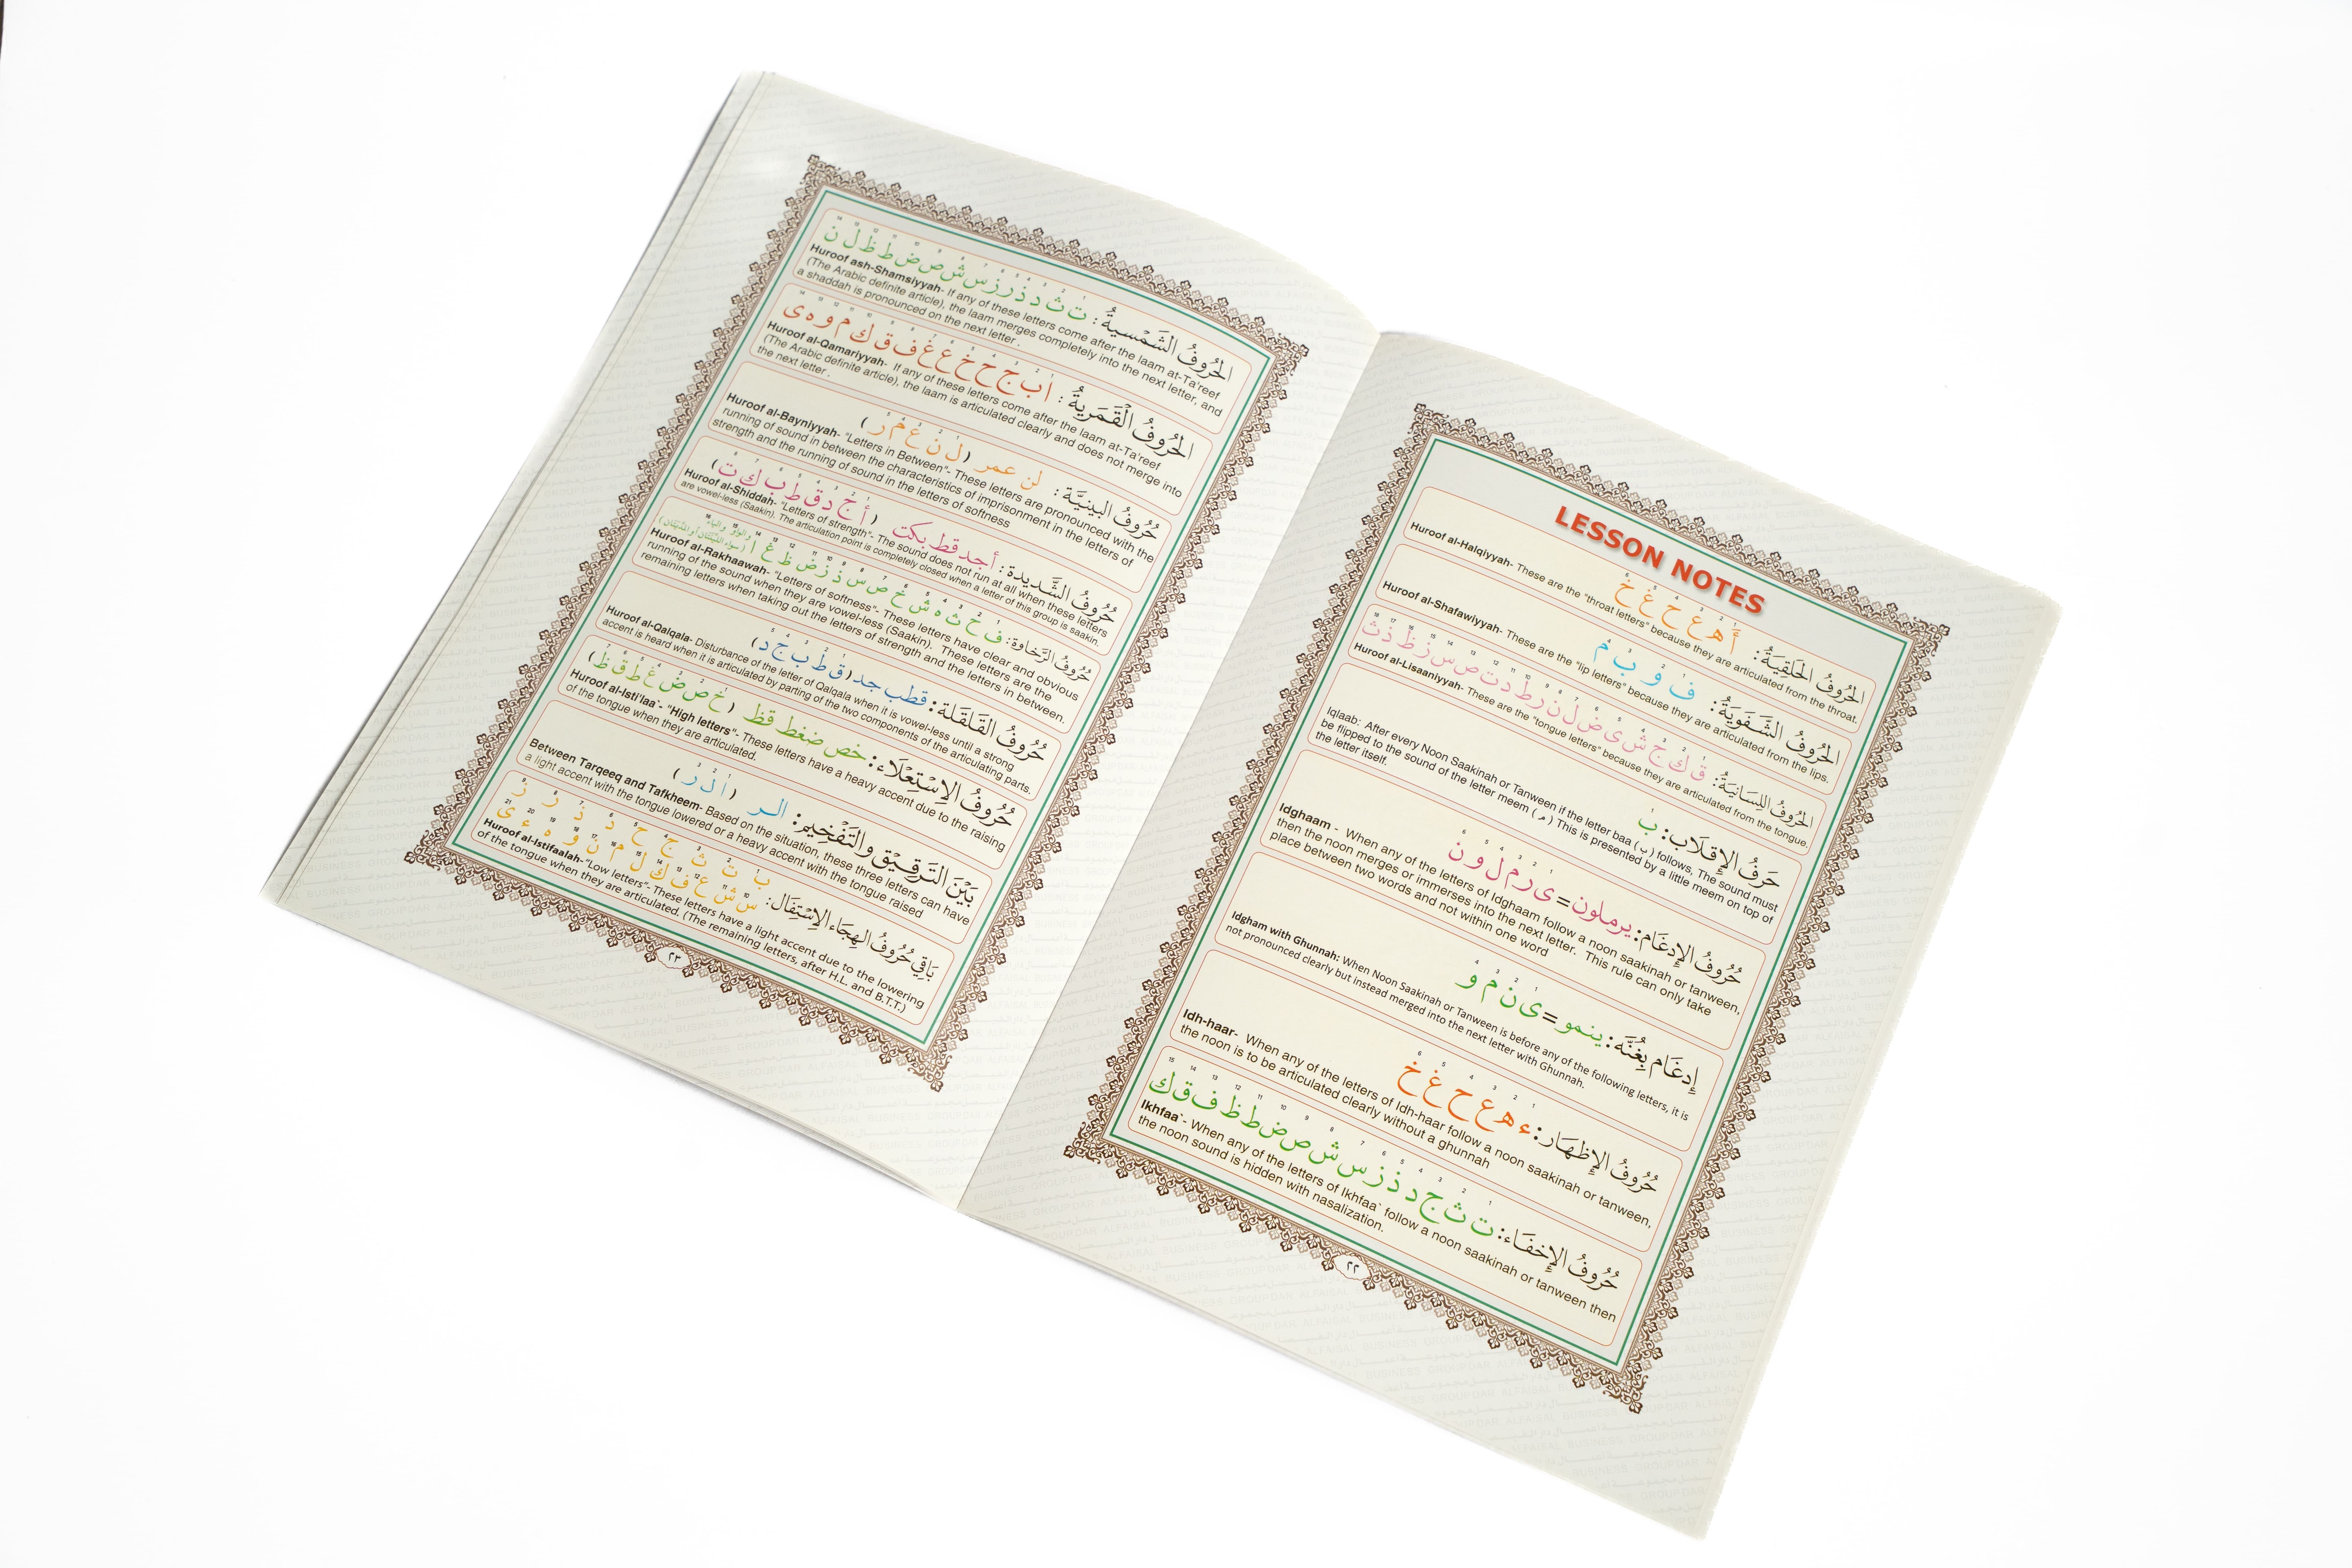 LESSON NOTES
الحُرُوفُ الحَلقِيَةُ: أ هـ ع ح غ خ
Huroof al-Halqiyyah- These are the "throat letters" because they are articulated from the throat.
الحُرُوفُ الشَّفَوِيَةُ: ف و ب م
Huroof al-Shafawiyyah- These are the "lip letters" because they are articulated from the lips.
الحُرُوفُ اللِسَانِيَةُ: ق ك ج ش ى ض ل ن ر ط د ت ص س ز ظ ذ ث
Huroof al-Lisaaniyyah- These are the "tongue letters" because they are articulated from the tongue.
حَرفُ الإِقلَاب: ب
Iqlaab: After every Noon Saakinah or Tanween if the letter baa (ب) follows, The sound must
be flipped to the sound of the letter meem (م) This is presented by a little meem on top of
the letter itself.
حُرُوفُ الإِدغَام: يرملون= ى ر م ل و ن
Idghaam - When any of the letters of Idghaam follow a noon saakinah or tanween,
then the noon merges or immerses into the next letter. This rule can only take
place between two words and not within one word
إِدغَام بِغُنَّه: ينمو= ى ن م و
Idgham with Ghunnah: When Noon Saakinah or Tanween is before any of the following letters, it is
not pronounced clearly but instead merged into the next letter with Ghunnah.
حُرُوفُ الإِظهَار: ء هـ ع ح غ خ
Idh-haar- When any of the letters of Idh-haar follow a noon saakinah or tanween,
the noon is to be articulated clearly without a ghunnah
حُرُوفُ الإِخفَاء: ت ث ج د ذ ز س ش ص ض ط ظ ف ق ك
Ikhfaa`- When any of the letters of Ikhfaa` follow a noon saakinah or tanween then
the noon sound is hidden with nasalization.
٢٢
الحُرُوفُ الشَمْسيةُ: ت ث د ذ ر ز س ش ص ض ط ظ ل ن
Huroof ash-Shamsiyyah- If any of these letters come after the laam at-Ta'reef
(The Arabic definite article), the laam merges completely into the next letter, and
a shaddah is pronounced on the next letter .
الحُرُوفُ الْقَمَرِيةُ: ا ب ج ح خ ع غ ف ق ك م و ه ى
Huroof al-Qamariyyah- If any of these letters come after the laam at-Ta'reef
(The Arabic definite article), the laam is articulated clearly and does not merge into
the next letter .
حُرُوفُ البينيَّة: لن عمر (ل ن ع م ر)
Huroof al-Bayniyyah- "Letters in Between"- These letters are pronounced with the
running of sound in between the characteristics of imprisonment in the letters of
strength and the running of sound in the letters of softness
حُرُوفُ الشَّديدة: أجد قط بكت (أ ج د ق ط ب ك ت)
Huroof al-Shiddah- "Letters of strength"- The sound does not run at all when these letters
are vowel-less (Saakin). The articulation point is completely closed when a letter of this group is saakin.
حُرُوفُ الرَّخاوة: ف ح ث ه ش خ ص س ذ ز ض ظ غ ا
Huroof al-Rakhaawah- "Letters of softness"- These letters have clear and obvious
running of the sound when they are vowel-less (Saakin). These letters are the
remaining letters when taking out the letters of strength and the letters in between.
حُرُوفُ القَلقَلة: قطب جد (ق ط ب ج د)
Huroof al-Qalqala- Disturbance of the letter of Qalqala when it is vowel-less until a strong
accent is heard when it is articulated by parting of the two components of the articulating parts.
حُرُوفُ الاِسْتِعْلَاء: خص ضغط قظ (خ ص ض غ ط ق ظ)
Huroof al-Isti'laa`- "High letters"- These letters have a heavy accent due to the raising
of the tongue when they are articulated.
بَيْنَ التَرقِيق والتَفْخِيم: الر (ا ل ر)
Between Tarqeeq and Tafkheem- Based on the situation, these three letters can have
a light accent with the tongue lowered or a heavy accent with the tongue raised
بَاقِي حُرُوفُ الهِجَاء الإِسْتِفَال: ب ت ث ج ح د ذ ر ز
س ش ع ف ك ل م ن و ه ء ى
Huroof al-Istifaalah-"Low letters"- These letters have a light accent due to the lowering
of the tongue when they are articulated. (The remaining letters, after H.L. and B.T.T.)
٢٣